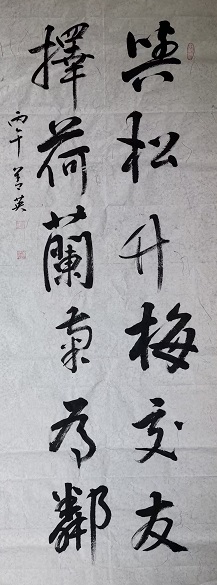 與松竹梅交友
擇荷蘭菊為鄰
丙午菁英